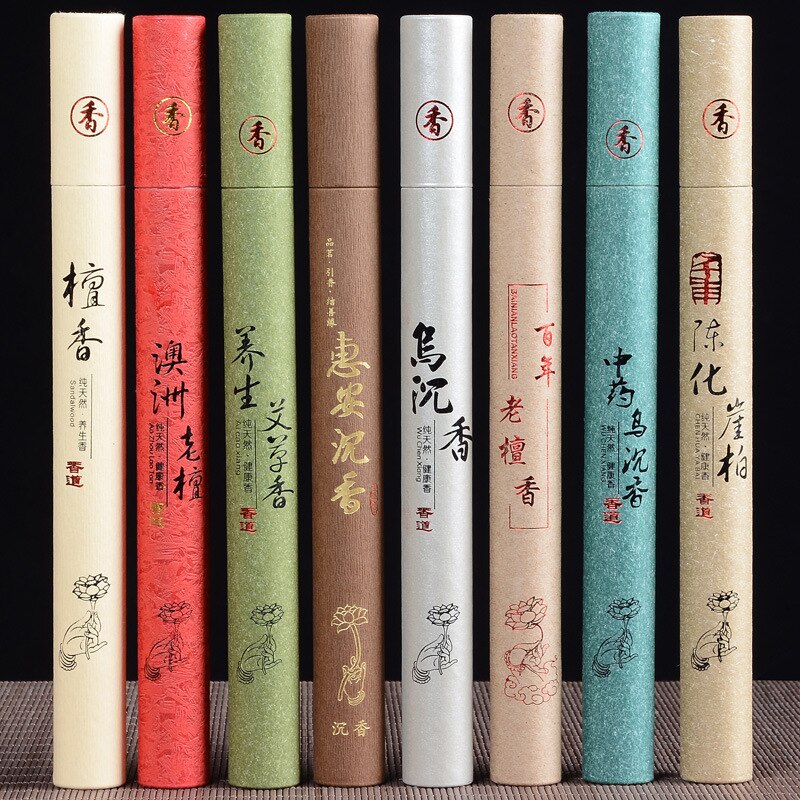 香
檀香
纯天然·养生香
Sandalwood
香道
香
澳洲
老檀
纯天然·健康香
Ao Zhou Lao Tan
香道
香
养生
艾草香
纯天然·健康香
香道
品茗·引香·结善缘
惠安沉香
沉香
香
乌沉香
纯天然·健康香
Wu Chen Xiang
香道
香
BAINIANLAOTANXIANG
百年
老檀香
香
中药
乌沉香
纯天然·健康香
香道
香
陈化
崖柏
纯天然·健康香
CHENHUA YABAI
香道